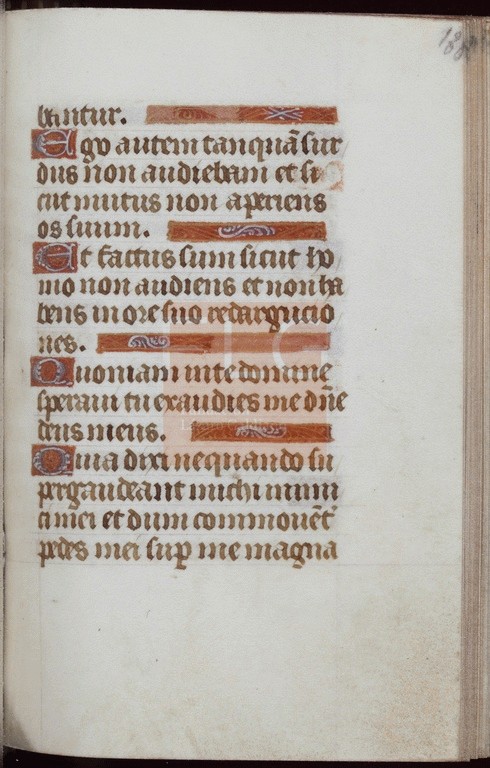 bantur.
Ego autem tanquā sur
dus non audiebam et si
cut mutus non aperiens
os suum.
Et factus sum sicut ho
mo non audiens et non ha
bens in ore suo redargucio
nes.
Quoniam in te domine
speraui tu exaudies me dn̄e
deus meus.
Quia dixi nequando su
pergaudeant michi inimi
ci mei et dum commouēt
pedes mei sup̄ me magna